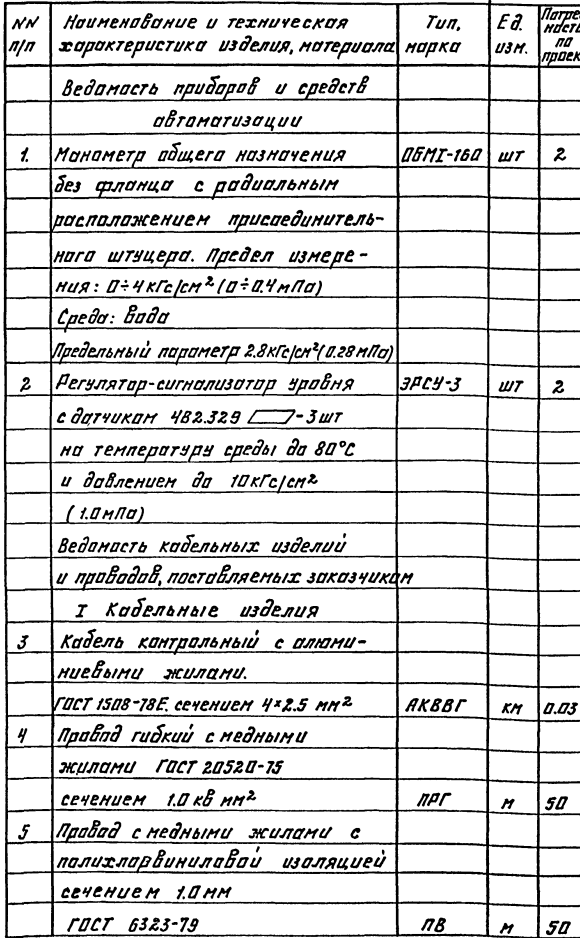 NN Наименование и техническая Тип, Ед. Потреб
п/п характеристика изделия, материала марка изм. ность по проек
Ведомость приборов и средств
автоматизации
1. Манометр общего назначения ОБМ1-160 шт 2
без фланца с радиальным
расположением присоединитель-
ного штуцера. Предел измере-
ния: 0÷4 кГс/см² (0÷0.4 мПа)
Среда: вода
Предельный параметр 2.8 кГс/см² (0.28 мПа)
2 Регулятор-сигнализатор уровня ЭРСУ-3 шт 2
с датчиком 482.329 - 3 шт
на температуру среды до 80°С
и давлением до 10 кГс/см²
(1.0 мПа)
Ведомость кабельных изделий
и проводов, поставляемых заказчиком
I Кабельные изделия
3 Кабель контрольный с алюми-
ниевыми жилами.
ГОСТ 1508-78Е. сечением 4×2.5 мм² АКВВГ км 0.03
4 Провод гибкий с медными
жилами ГОСТ 20520-75
сечением 1.0 кв мм² ПРГ м 50
5 Провод с медными жилами с
полихлорвиниловой изоляцией
сечением 1.0 мм
ГОСТ 6323-79 ПВ м 50